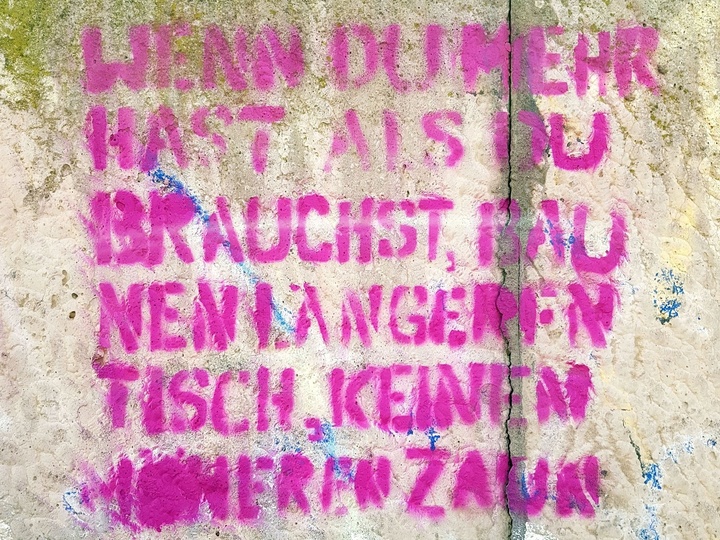 WENN DU MEHR
HAST ALS DU
BRAUCHST, BAU
NEN LÄNGEREN
TISCH, KEINEN
HÖHEREN ZAUN